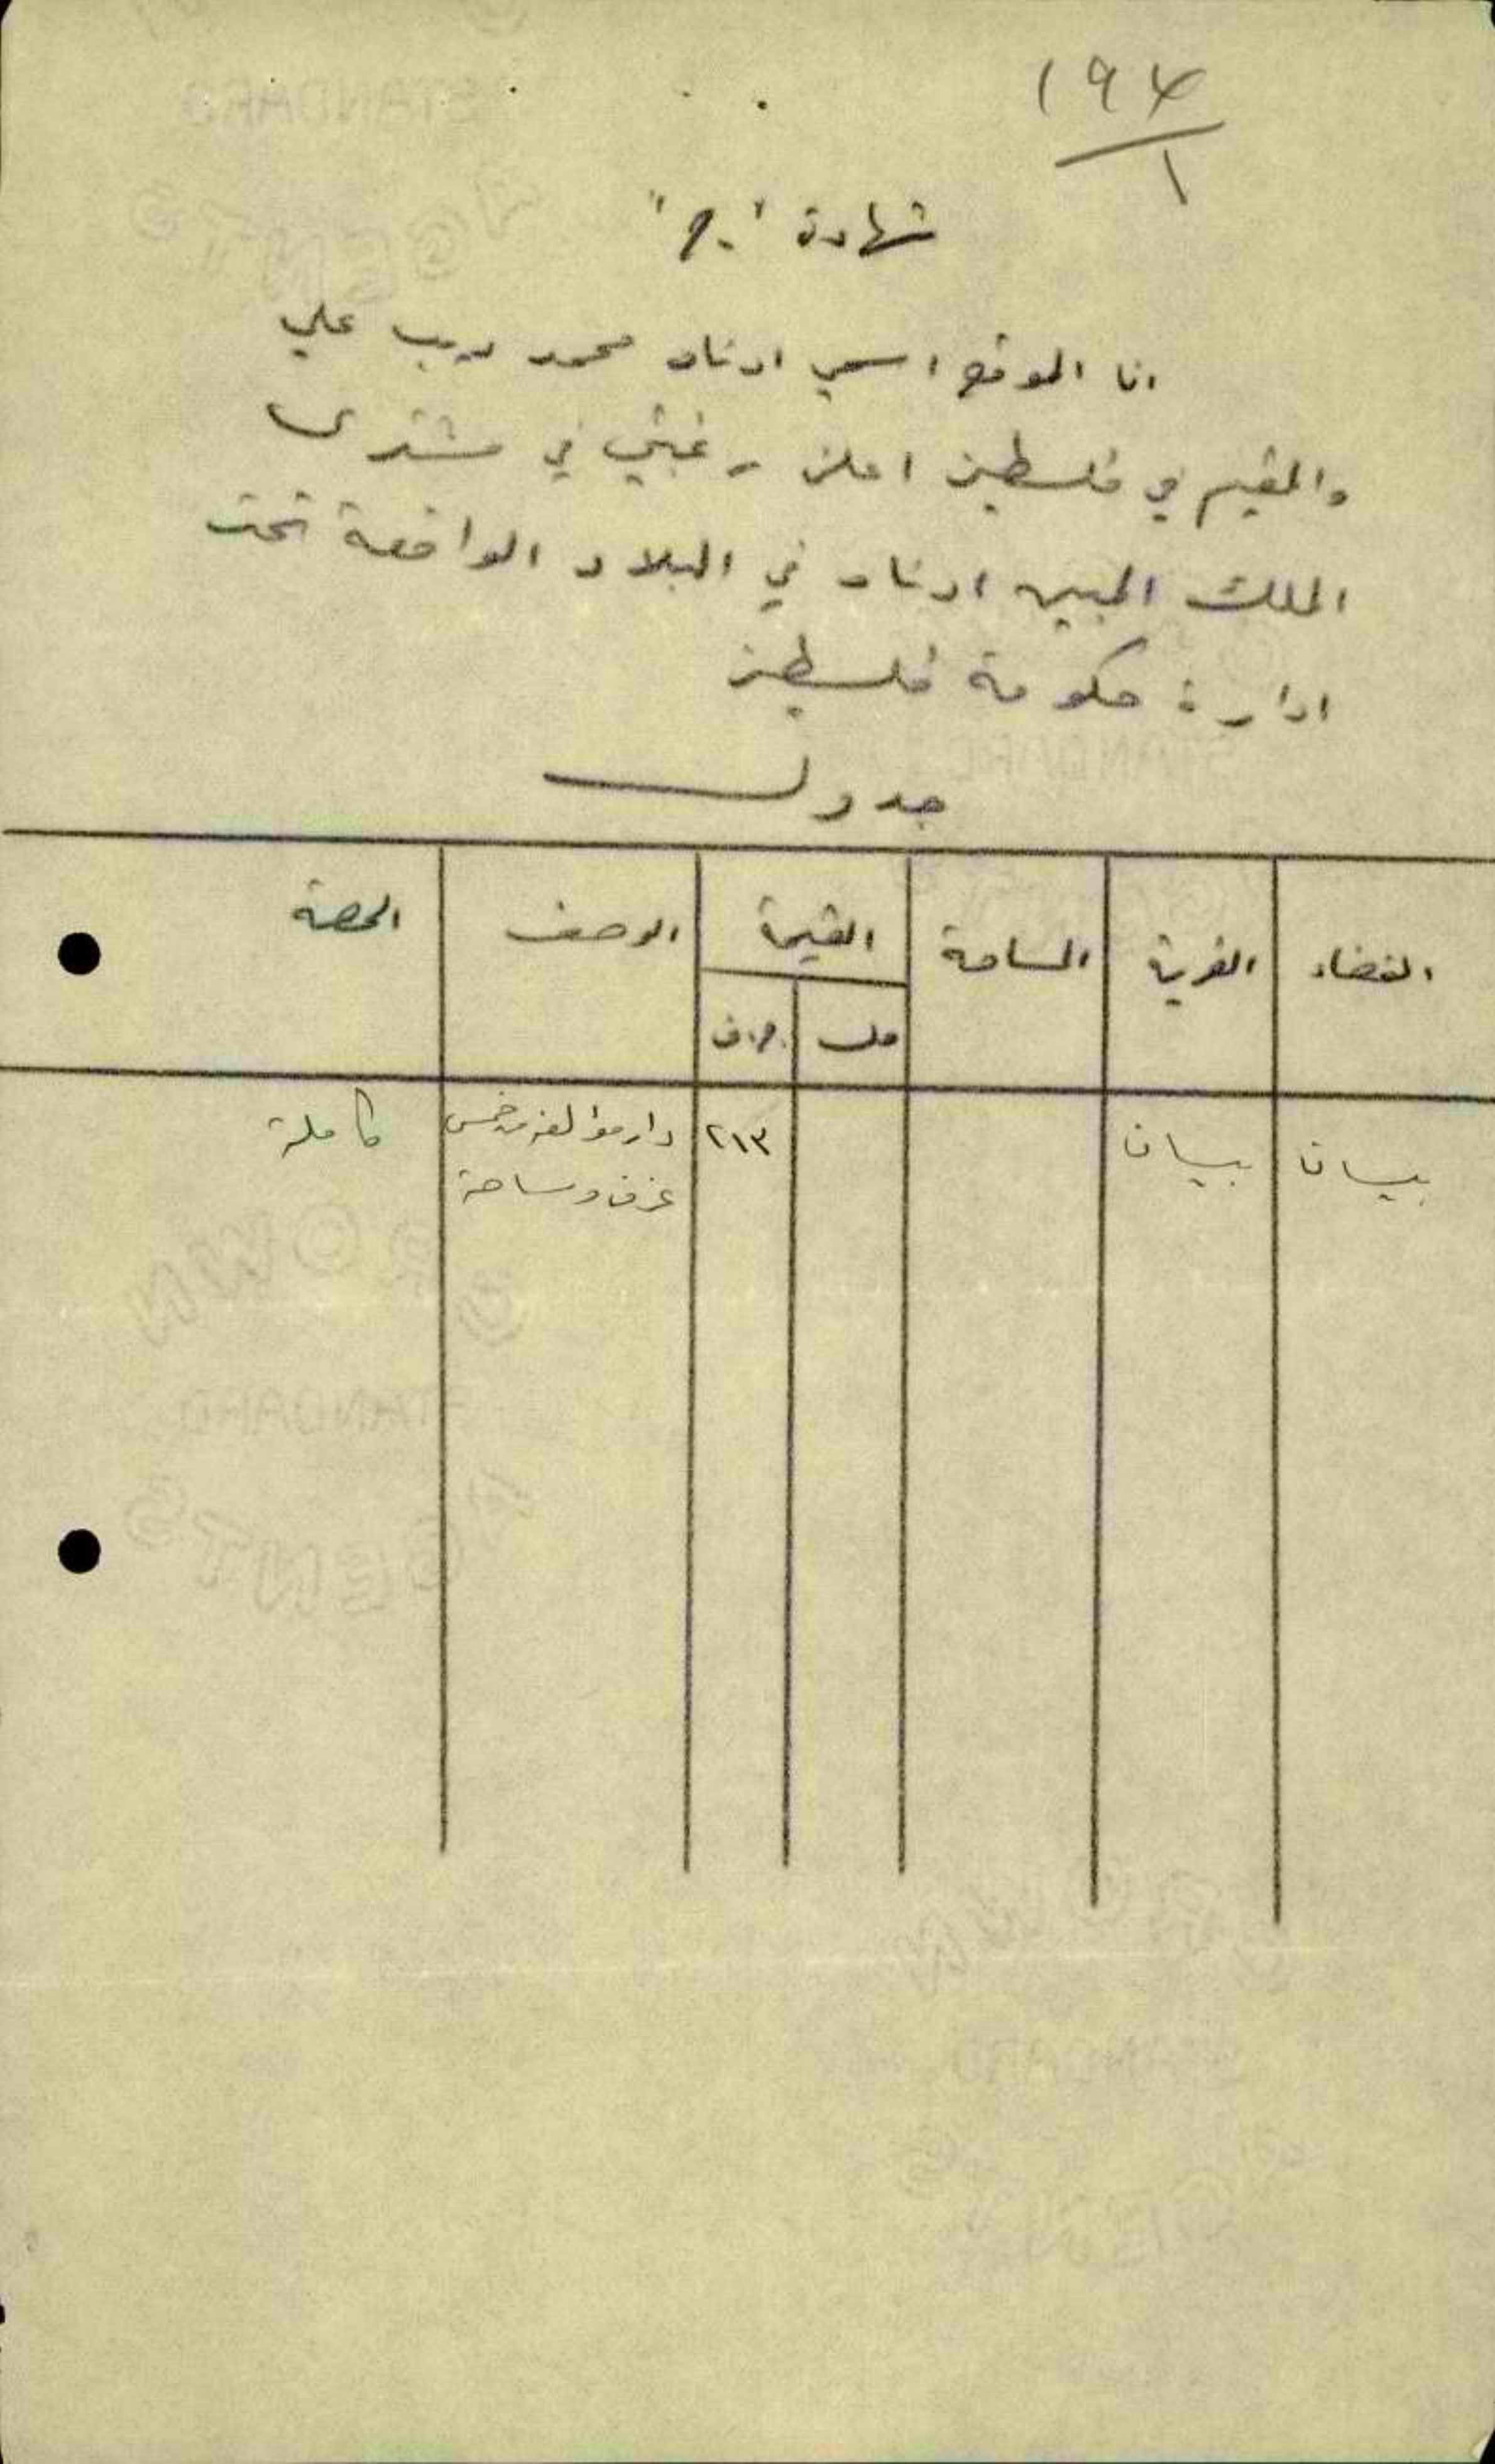 ١٩٤
١
شهادة "ج"
انا الموقع اسمي ادناه محمد ديب علي
والمقيم في فلسطين اعلن رغبتي في مشترى
الملك المبين ادناه في البلاد الواقعة تحت
ادارة حكومة فلسطين
جدول
القضاء القرية المساحة القيمة الوصف الحصة
مل ج.ف
بيسان بيسان ٢١٣ دار مؤلفه من خمس كاملة
غرف وساحة